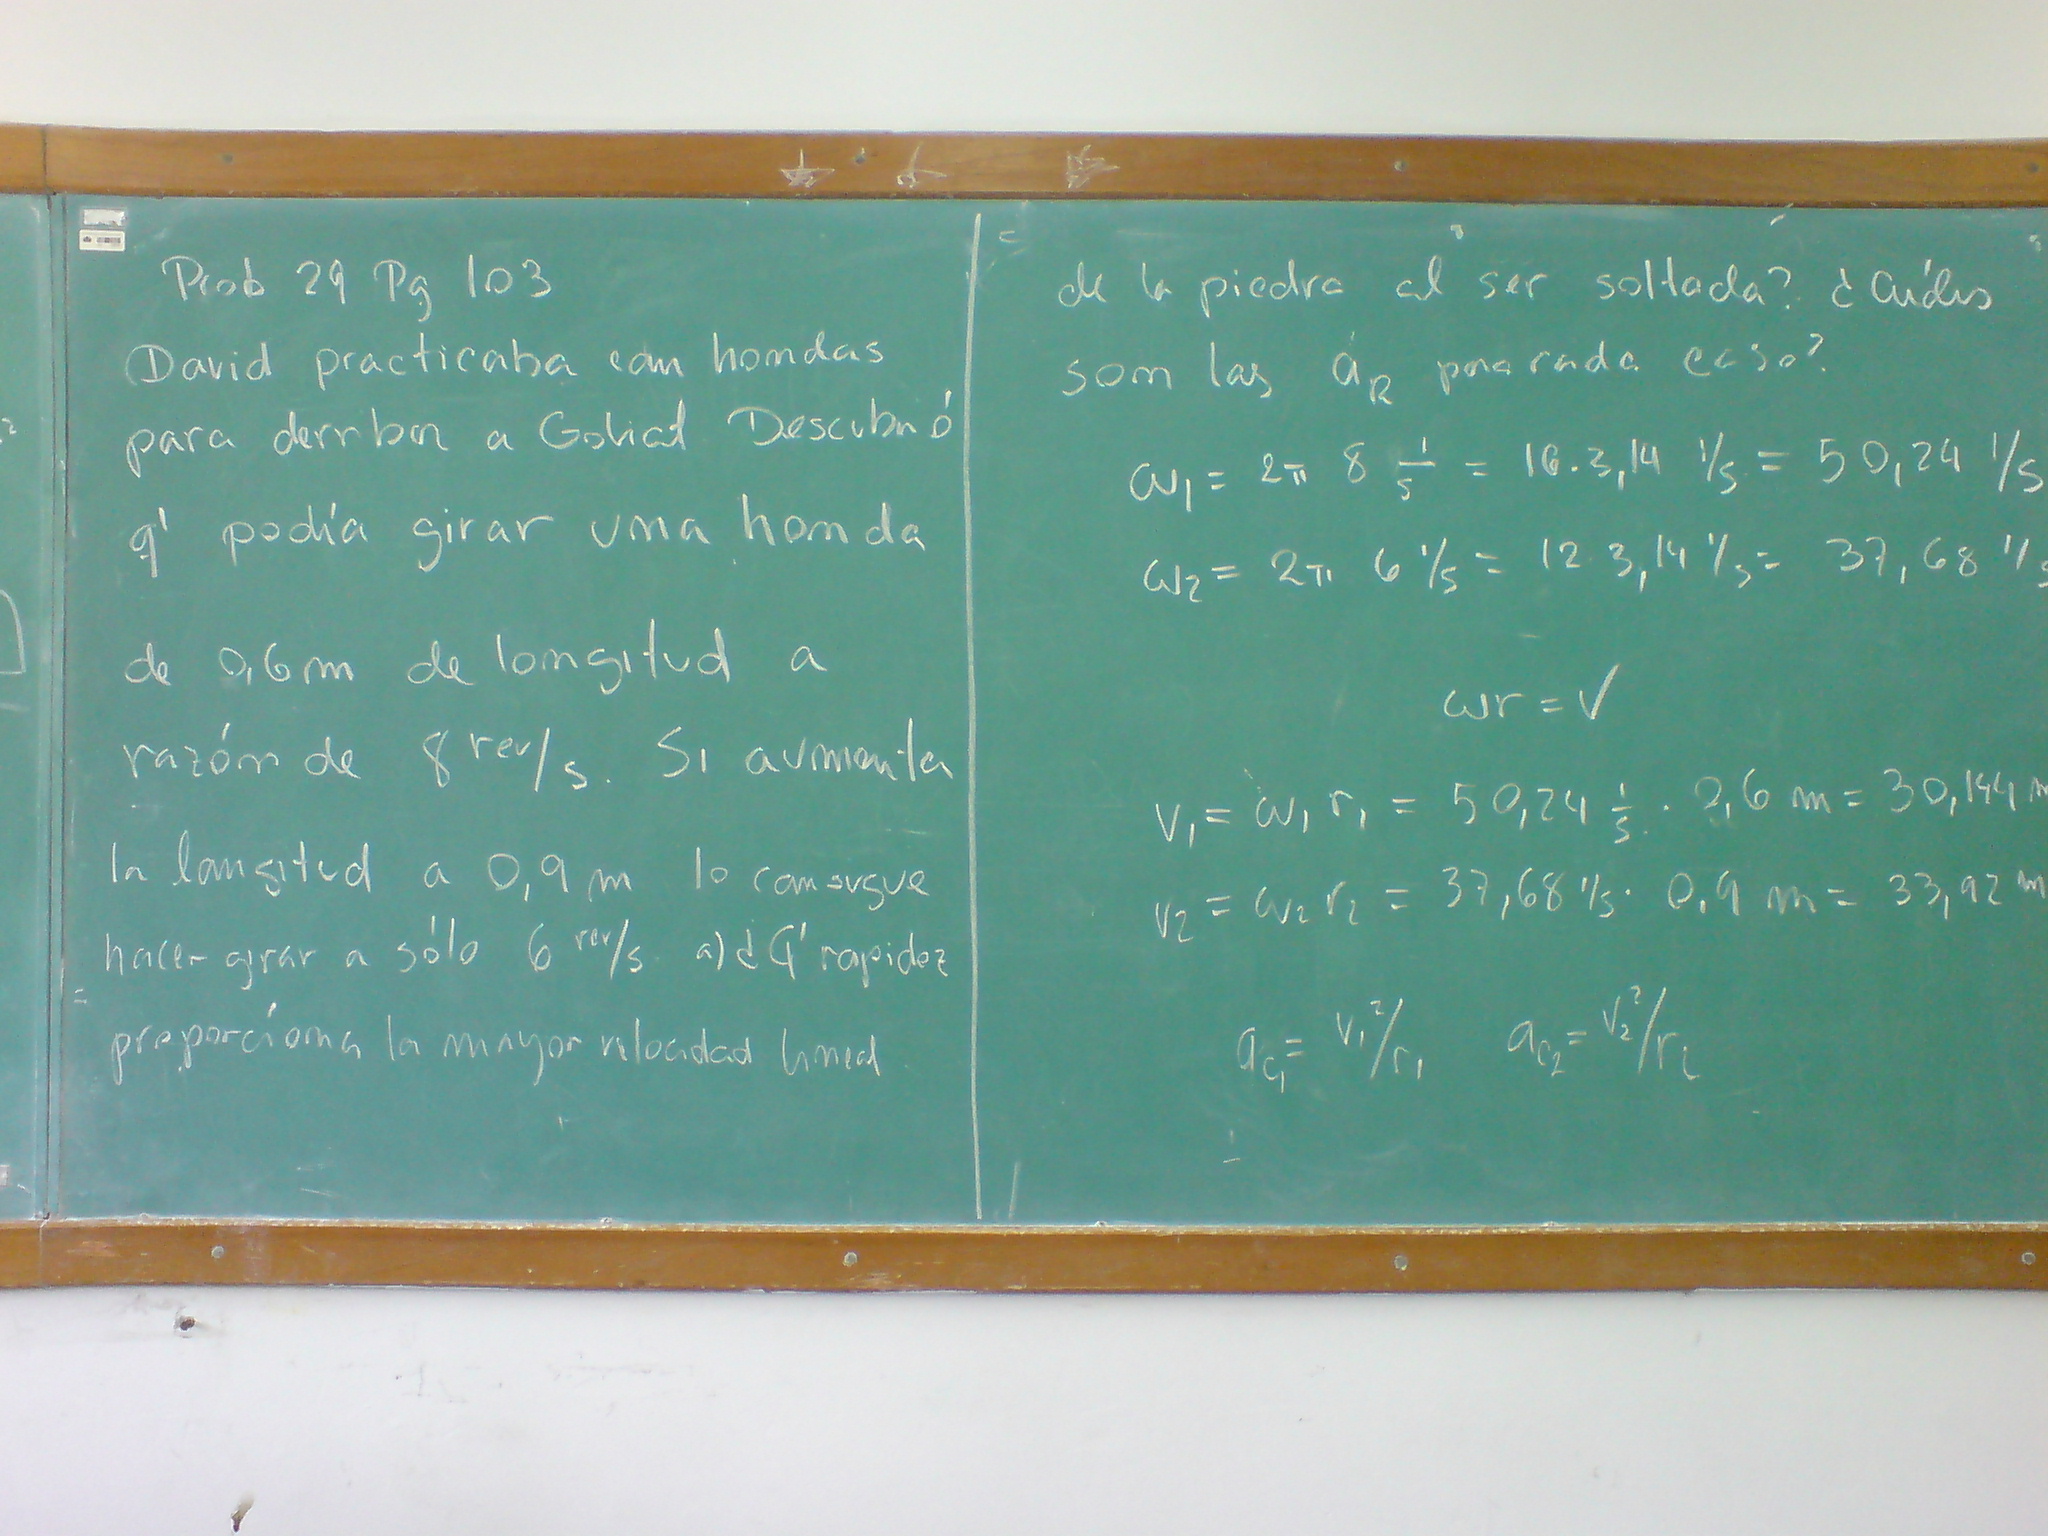 Prob 29 Pg 103
David practicaba con hondas
para derribar a Goliat Descubrió
q' podía girar una honda
de 0,6 m de longitud a
razón de 8 rev/s. Si aumenta
la longitud a 0,9 m lo consigue
hacer girar a sólo 6 rev/s a) ¿Q' rapidez
proporciona la mayor velocidad lineal
de la piedra al ser soltada? ¿Cuáles
son las a_R para cada caso?
ω₁ = 2π 8 1/s = 16·3,14 1/s = 50,24 1/s
ω₂ = 2π 6 1/s = 12·3,14 1/s = 37,68 1/s
ωr = v
v₁ = ω₁ r₁ = 50,24 1/s · 0,6 m = 30,144 m
v₂ = ω₂ r₂ = 37,68 1/s · 0,9 m = 33,92 m
a_c₁ = v₁²/r₁ a_c₂ = v₂²/r₂